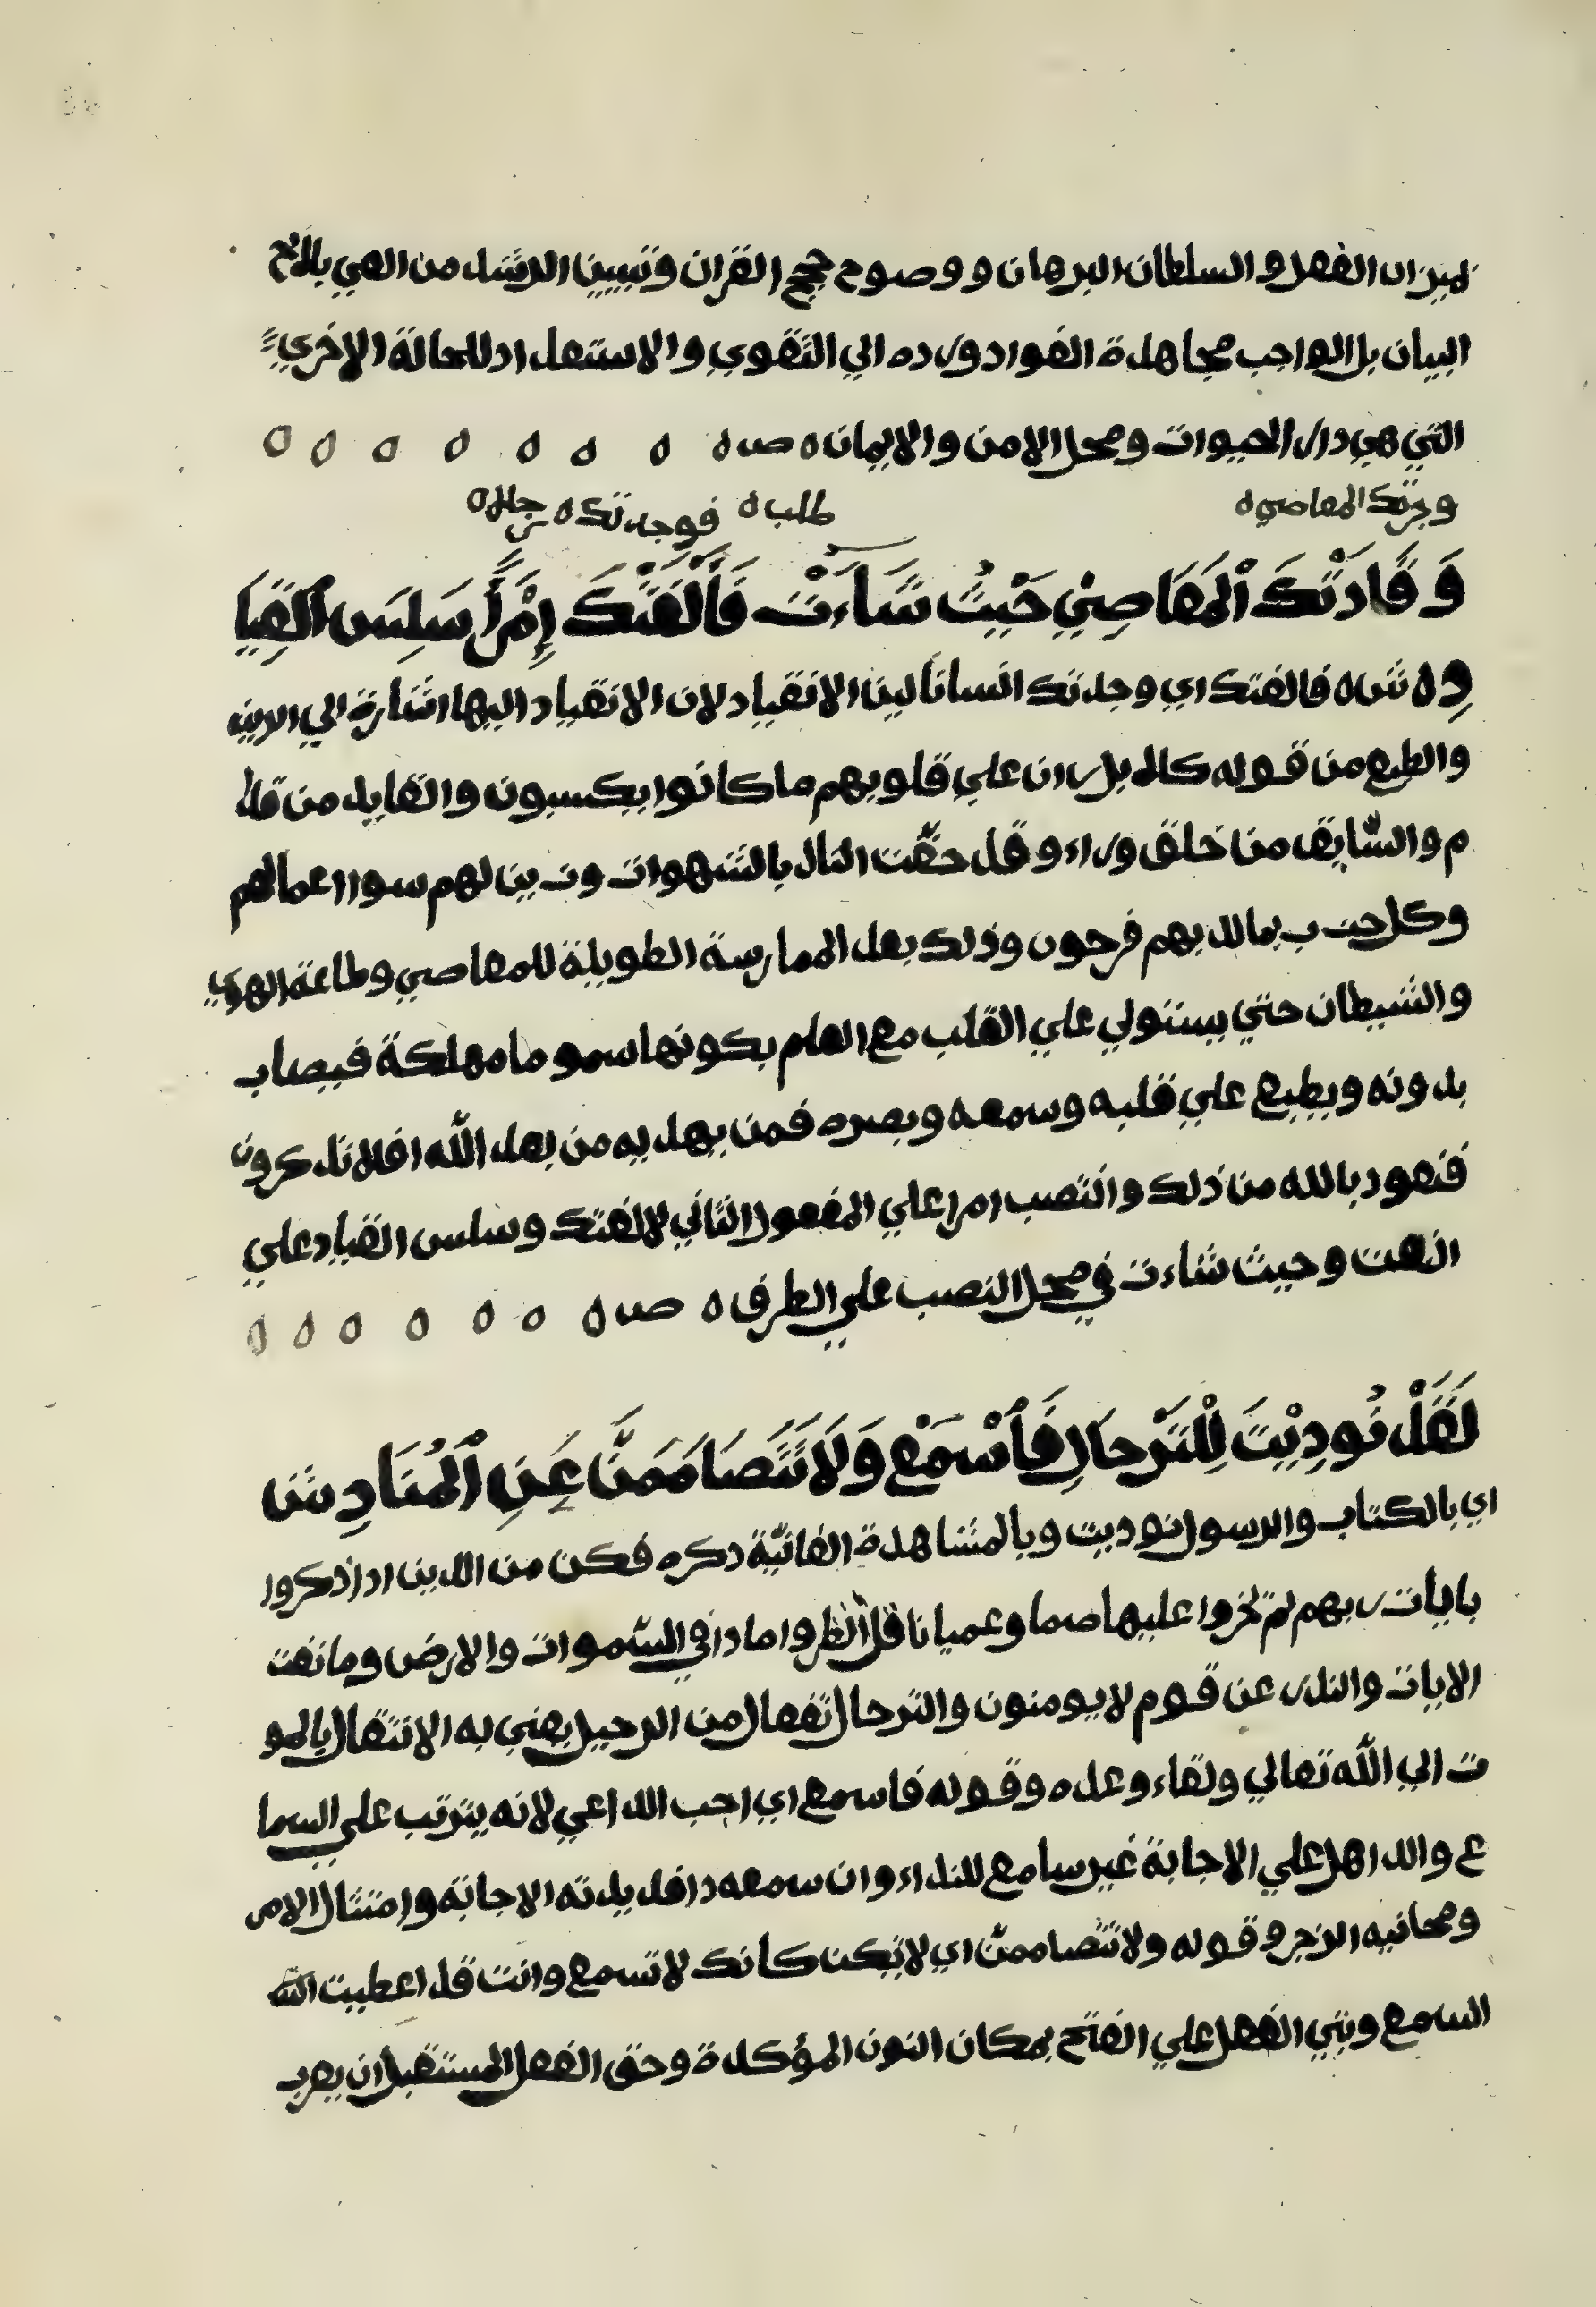 لميزان العقل والسلطان البرهان ووضوح حجج القران وتبيين الرشد من الغي بالاخ
البيان بل الواجب مجاهدة الفواد ورده الي التقوي والاستعداد للحالة الاخري
التي هي دار الحيوات ومحل الامن والايمان ه صد ه ه ه ه ه ه ه ه
وجرتك المعاصي ه طلب ه فوجدتك ه رجلا ه
وَقَادَتْكَ ٱلمَعَاصِيْ حَيْثُ شَاءَتْ فَأَلْفَتْكَ إِمْرَأً سَلِسَ ٱلقِيَا
دِ ه ش ه فالفتك اي وجدتك انسانا لين الانقياد لان الانقياد اليها اشارة الي الرين
والطبع من قوله كلا بل ران علي قلوبهم ما كانوا يكسبون والقايد من قدا
م والسّايق من خلق وراء وقد حفّت النار بالشهوات وزين لهم سوا اعمالهم
وكل حزب بما لديهم فرحون وذلك بعد الممارسة الطويلة للمعاصي وطاعة الهوي
والشيطان حتي يستولي علي القلب مع العلم بكونها سموما مهلكة فيصاب
بدونه ويطبع علي قلبه وسمعه وبصره فمن يهديه من بعد الله افلا تذكرون
فنعوذ بالله من ذلك وانتصب امرا علي المفعول الثاني لالفتك وسلس القياد علي
النعت وحيث شاءت في محل النصب علي الظرف ه صد ه ه ه ه ه ه ه ه
لَقَدْ نُودِيْتَ لِلْتَرْحَالِ فَٱسْمَعْ وَلَا تَتَصَامَمَنَّ عَنِ ٱلمُنَادِ ش
اي بالكتاب والرسول نوديت وبالمشاهدة الفانيّة ذكره فكن من الذين اذا ذكروا
بايات ربهم لم يخروا عليها صما وعميانا قل انظروا ماذا في السّموات والارض وما تغن
الايات والنذر عن قوم لا يومنون والترحال تفعال من الرحيل يعني به الانتقال بالمو
ت الي الله تعالي ولقاء وعده وقوله فاسمع اي اجب الداعي لانه يترتب علي السما
ع والذاهل علي الاجابة غير سامع للنداء وان سمعه اذا فديدته الاجابة وامتثال الامر
ومجانبه الزجر وقوله ولا تتصاممنّ اي لا تكن كانك لا تسمع وانت قد اعطيت الله
السمع وبني الفعل علي الفتح بمكان النون المؤكدة وحق الفعل المستقبل ان يعرب